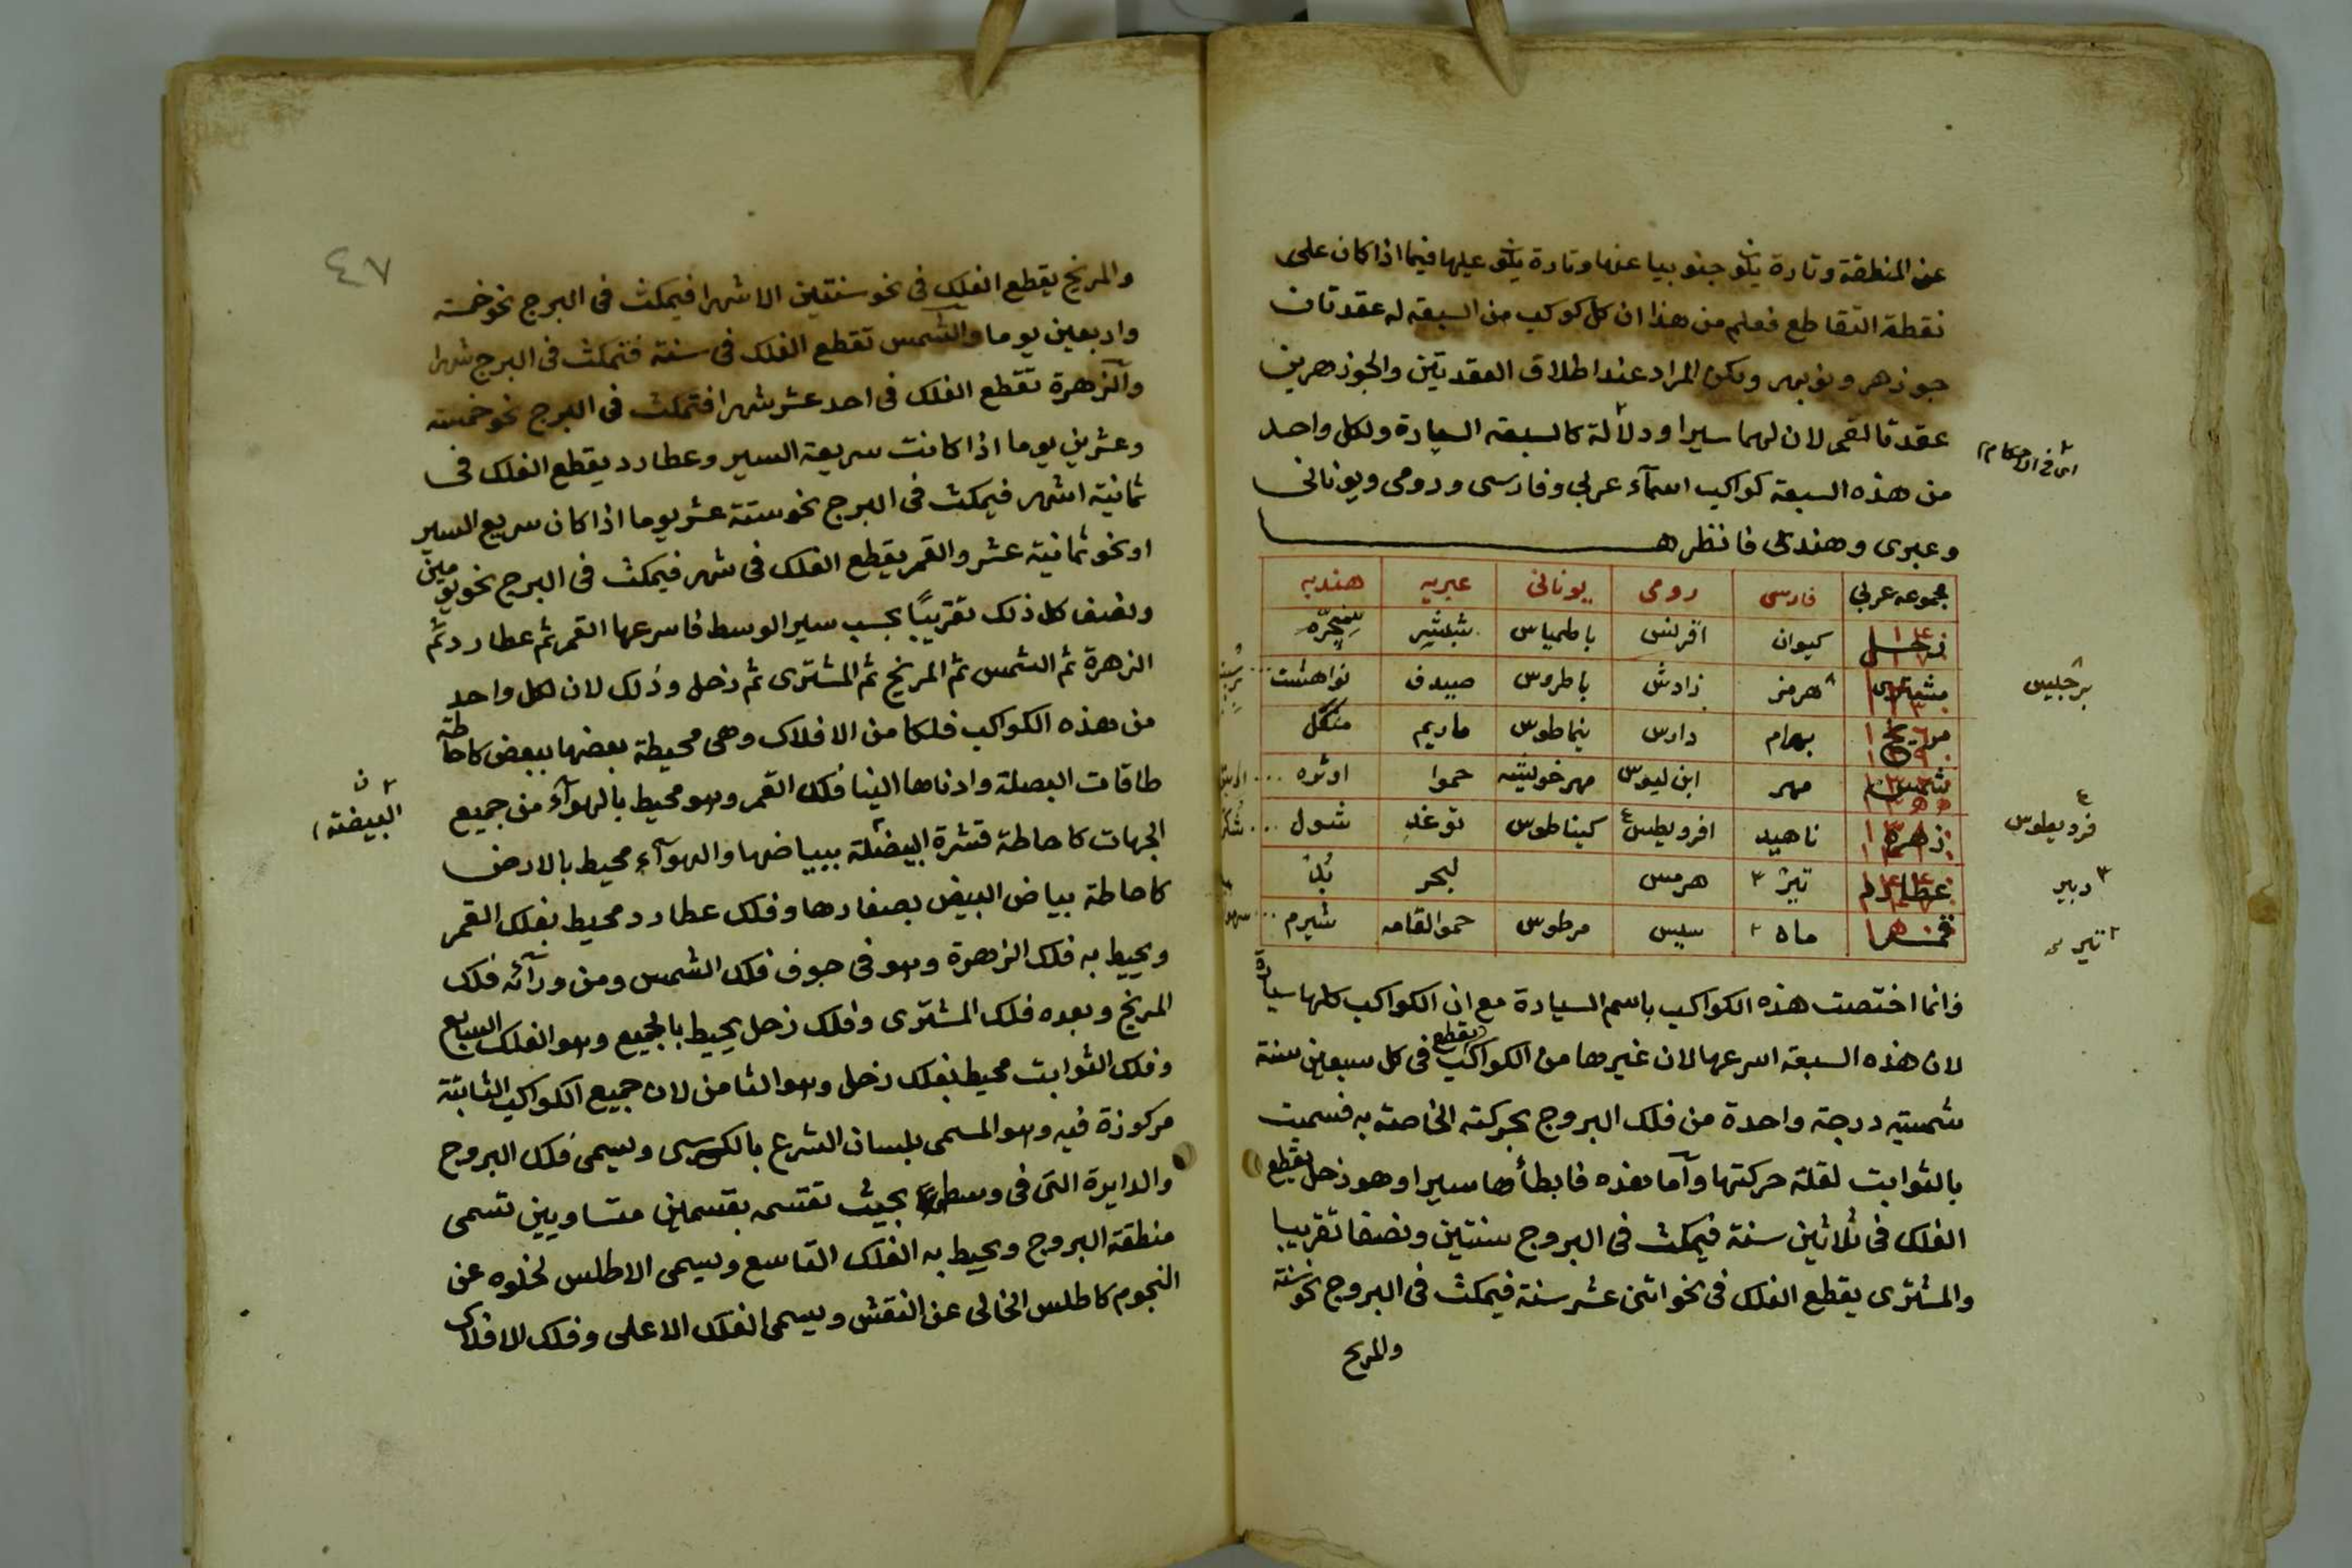 عن المنطقة وتارة يكون جنوبيا عنها وتارة يكون عليها فيما اذا كان على
نقطة التقاطع فعلم من هذا ان كل كوكب من السبعة له عقدتان
جوزهر ونوبهر ولكن المراد عند اطلاق العقدتين والجوزهرين
عقدتا القمر لان لهما سيرا ودلالة كالسبعة السيارة ولكل واحد
اى فى الاحكام
من هذه السبعة كواكب اسمآء عربي وفارسى ورومى ويونانى
وعبرى وهندى فانظرها
مجموعه عربي فارسى رومى يونانى عبريه هنديه
زحل كيوان اقرنس باطمياس شبثير
مشترى هرمز زادش باطروس صيدف نواهشت
برجيس
مريخ بهرام دارس ينماطوس ماريم منگل
شمس مهر ابن ليوس حموا اوثوه
زهره ناهيد افرويطس كيناطوس توغه شول
فرديطوس
عطارد تير هرمس لبحر
دبير
قمر ماه سيس مرطوس حموالقامه شيرم
تير
وانما اختصت هذه الكواكب باسم السيارة مع ان الكواكب كلها سيارة
لان هذه السبعة اسرعها لان غيرها من الكواكب يقطع فى كل سبعين سنة
شمسية درجة واحدة من فلك البروج بحركته الخاصة به فسميت
بالثوابت لقلة حركتها وآما هذه فابطأها سيرا وهو زحل يقطع
الفلك فى ثلاثين سنة فيمكث فى البروج سنتين ونصفا تقريبا
والمشترى يقطع الفلك فى نحو اثنى عشر سنة فيمكث فى البروج نحو سنة
والمريخ
٤٧
والمريخ يقطع الفلك فى نحو سنتين الا شهرا فيمكث فى البرج نحو خمسة
واربعين يوما والشمس تقطع الفلك فى سنة فتمكث فى البرج شهرا
والزهرة تقطع الفلك فى احد عشر شهرا فتمكث فى البرج نحو خمسة
وعشرين يوما اذا كانت سريعة السير وعطارد يقطع الفلك فى
ثمانية اشهر فيمكث فى البرج نحو ستة عشر يوما اذا كان سريع السير
او نحو ثمانية عشر والقمر يقطع الفلك فى شهر فيمكث فى البرج نحو يومين
ونصف كل ذلك تقريبًا بحسب سير الوسط فاسرعها القمر ثم عطارد ثم
الزهرة ثم الشمس ثم المريخ ثم المشترى ثم زحل وذلك لان لكل واحد
من هذه الكواكب فلكا من الافلاك وهى محيطة بعضها ببعض كاحاطة
طاقات البصلة وادناها الينا فلك القمر وهو محيط بالهوآء من جميع
الجهات كاحاطة قشرة البيضة ببياضها والهوآء محيط بالارض
البيضة
كاحاطة بياض البيض بصفارها وفلك عطارد محيط بفلك القمر
ويحيط به فلك الزهرة وهو فى جوف فلك الشمس ومن ورآئه فلك
المريخ وبعده فلك المشترى وفلك زحل يحيط بالجميع وهو الفلك السابع
وفلك الثوابت محيط بفلك زحل وهو الثامن لان جميع الكواكب الثابتة
مركوزة فيه وهو المسمى بلسان الشرع بالكرسى ويسمى فلك البروج
والدايرة التى فى وسطه بحيث تقسمه بقسمين متساويين تسمى
منطقة البروج ويحيط به الفلك التاسع ويسمى الاطلس لخلوه عن
النجوم كاطلس الخالى عن النقش ويسمى الفلك الاعلى وفلك الافلاك